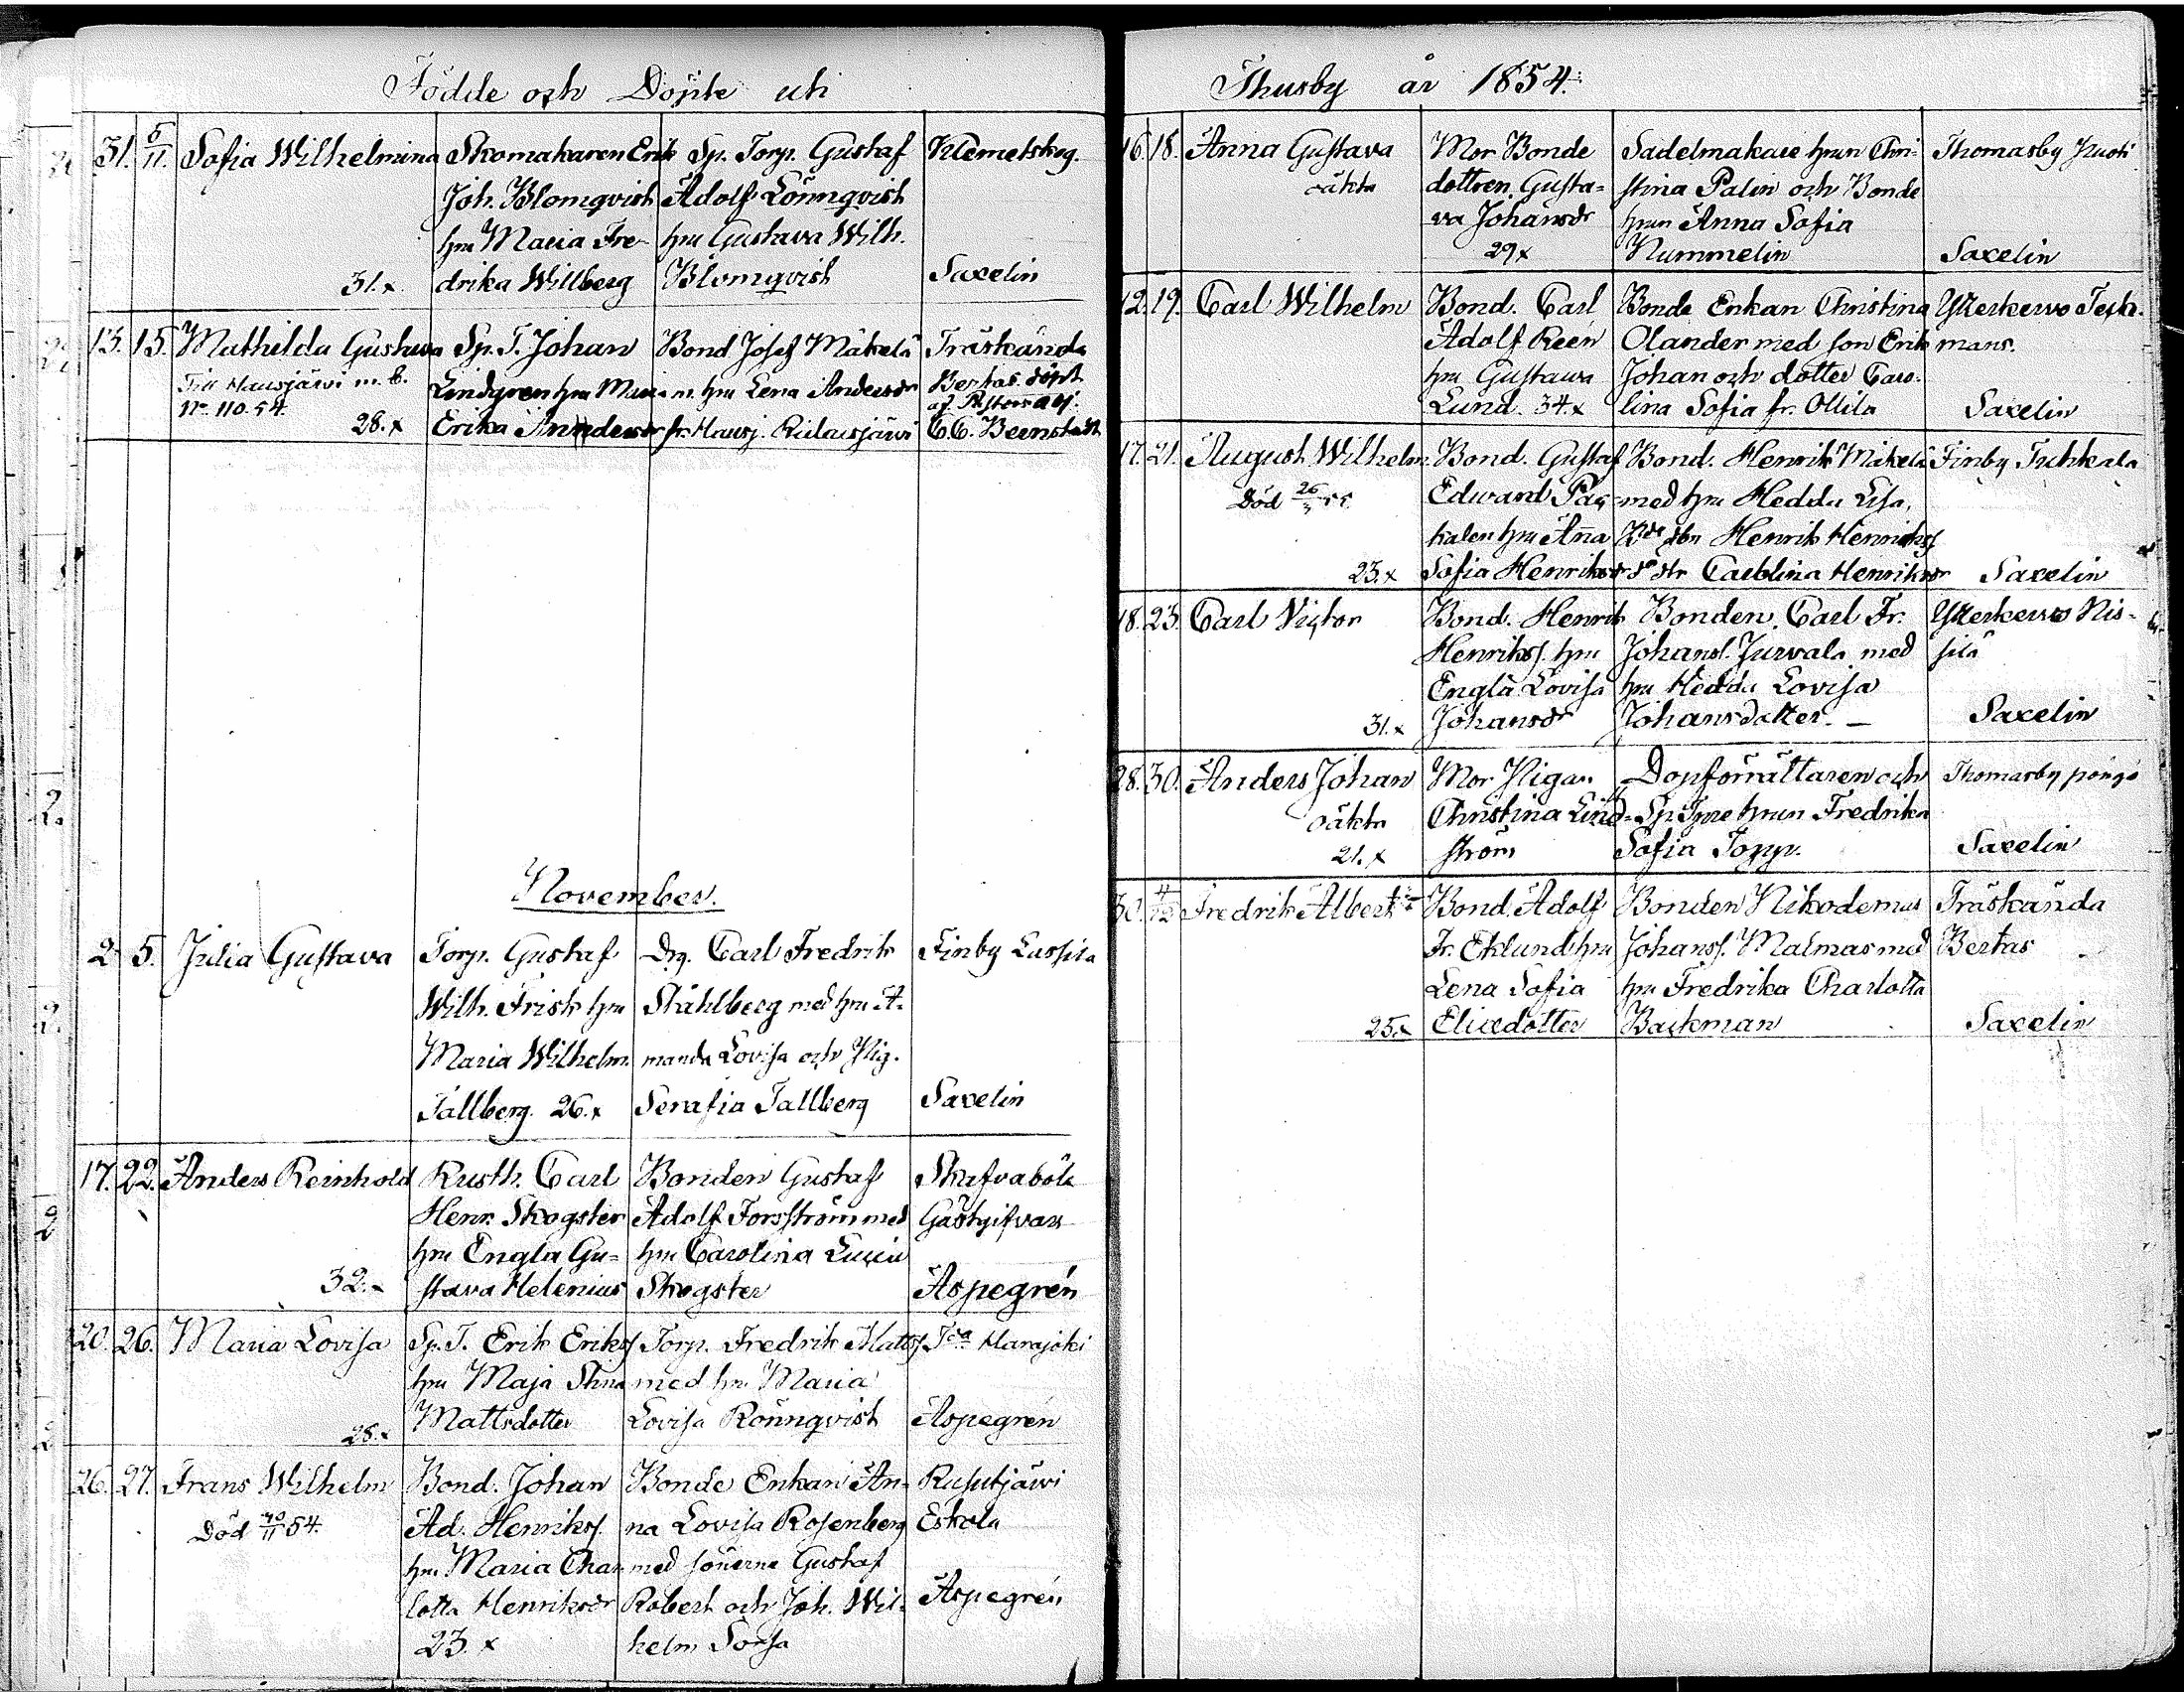 Födde och Döpte uti
31. 5/11. Sofia Wilhelmina Skomakaren Erik Sp. Torp. Gustaf Klemetskog.
Joh. Blomqvist Adolf Lönnqvist
hu Maria Fre- hu Gustava Wilh.
31.x drika Willberg Blomqvist Saxelin
13. 15. Mathilda Gustava Sp. T. Johan Bond Josef Mäkelä Träskända
Till Hausjärvi m. b. Lindgren hu Mari- m. hu Lena Andersdr Bertas döpt
No 110.54. af Pastorn adj.
28.x Erika Andersdr fr. Hausj. Ridasjärvi C.C. Bernstedt
November.
2 5. Julia Gustava Torp. Gustaf Drg. Carl Fredrik Finby Lassila
Wilh. Frisk hu Ståhlberg med hu A-
Maria Wilhelm. manda Lovisa och Pig.
Tallberg. 26.x Serafia Tallberg Saxelin
17. 22. Anders Reinhold Rusth. Carl Bonden Gustaf Skafvaböle
Henr. Skogster Adolf Forsström med Gästgifvars
hu Engla Gu- hu Carolina Lucia
32.x stava Helenius Skogster Aspegrén
20. 26. Maria Lovisa Sp. T. Erik Eriks. Torp. Fredrik Matts. Harajoki
hu Maja Stina med hu Maria
28.x Mattsdotter Lovisa Rönnqvist Aspegrén
26. 27. Frans Wilhelm Bond. Johan Bonde Enkan An- Rusutjärvi
Död 30/11 54. Ad. Henriks. na Lovisa Rosenberg Eskola
hu Maria Char- med sönerne Gustaf
lotta Henriksdr Robert och Joh. Wil- Aspegrén
23.x helm Sorsa
Thusby år 1854.
16. 18. Anna Gustava Mor Bonde Sadelmakare hun Chri- Thomasby Huoti
oäkta dottren Gusta- stina Palin och Bonde
va Johansdr hun Anna Sofia
29.x Nummelin Saxelin
12. 19. Carl Wilhelm Bond. Carl Bonde Enkan Christina Ytterkervo
Adolf Reén Olander med son Erik mans.
hu Gustava Johan och dotter Caro-
Lund. 34.x lina Sofia fr. Ollila Saxelin
17. 21. August Wilhelm. Bond. Gustaf Bond. Henrik Mäkelä Finby Tuhkala
Död 26/3 55. Edward Pas- med hu Hedda Lisa,
kalen hu Anna Henrik Henriks.
23.x Sofia Henriksdr Carolina Henriksdr Saxelin
18. 23. Carl Victor Bond. Henrik Bonden Carl Fr. Ytterkervo Nis-
Henriks. hu Johans. Jurvala med silä
Engla Lovisa hu Hedda Lovisa
31.x Johansdr Johansdotter. — Saxelin
28. 30. Anders Johan Mor Pigan Dopförrättaren och Thomasby
oäkta Christina Lind- Sp. hun Fredrika
21.x ström Sofia Saxelin
30. 4/12 Fredrik Albert Bond. Adolf Bonden Nikodemus Träskända
Fr. Eklund hu Johans. Malmas med Bertas
Lena Sofia hu Fredrika Charlotta
25.x Elixdotter Backman Saxelin